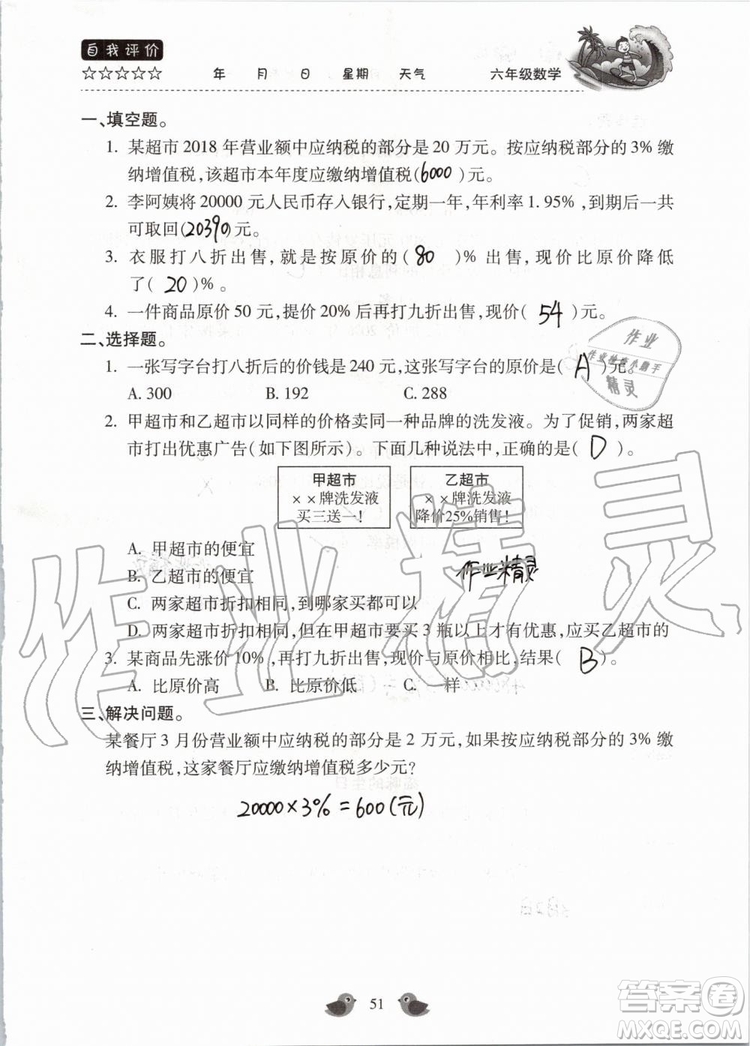 自我评价
☆☆☆☆☆ 年 月 日 星期 天气 六年级数学
一、填空题。
1. 某超市 2018 年营业额中应纳税的部分是 20 万元。按应纳税部分的 3% 缴
纳增值税,该超市本年度应缴纳增值税(6000)元。
2. 李阿姨将 20000 元人民币存入银行,定期一年,年利率 1.95%,到期后一共
可取回(20390)元。
3. 衣服打八折出售,就是按原价的( 80 )% 出售,现价比原价降低
了( 20 )%。
4. 一件商品原价 50 元,提价 20% 后再打九折出售,现价( 54 )元。
二、选择题。
1. 一张写字台打八折后的价钱是 240 元,这张写字台的原价是( A )元。
A. 300 B. 192 C. 288
2. 甲超市和乙超市以同样的价格卖同一种品牌的洗发液。为了促销,两家超
市打出优惠广告(如下图所示)。下面几种说法中,正确的是( D )。
甲超市
××牌洗发液
买三送一!
乙超市
××牌洗发液
降价25%销售!
A. 甲超市的便宜
B. 乙超市的便宜
C. 两家超市折扣相同,到哪家买都可以
D. 两家超市折扣相同,但在甲超市要买 3 瓶以上才有优惠,应买乙超市的
3. 某商品先涨价 10%,再打九折出售,现价与原价相比,结果( B )。
A. 比原价高 B. 比原价低 C. 一样
三、解决问题。
某餐厅 3 月份营业额中应纳税的部分是 2 万元,如果按应纳税部分的 3% 缴
纳增值税,这家餐厅应缴纳增值税多少元?
20000×3%=600(元)
51
作业
作业检查小助手
精灵
作业精灵
作业精灵
答案圈
MXQE.COM